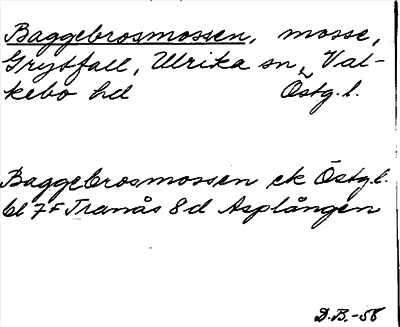 Baggebrosmossen, mosse,
Grytfall, Ulrika sn, Val-
kebo hd Östg. l.
Baggebrosmossen ek Östg. l.
bl 7F Tranås 8d Asplången
D.B.-58